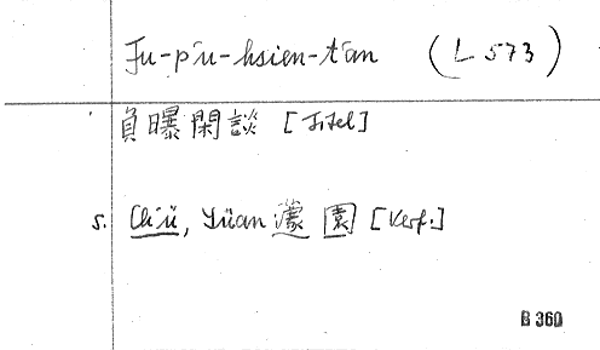 Fu-p'u-hsien-t'an (L 573)
負曝閑談 [Titel]
s. Ch'ü, Yüan 濛園 [Verf.]
B 360